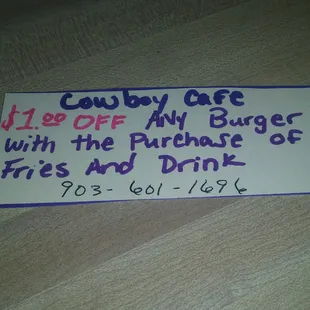 Cowboy Cafe
$1.00 OFF Any Burger
with the Purchase of
Fries And Drink
903-601-1696